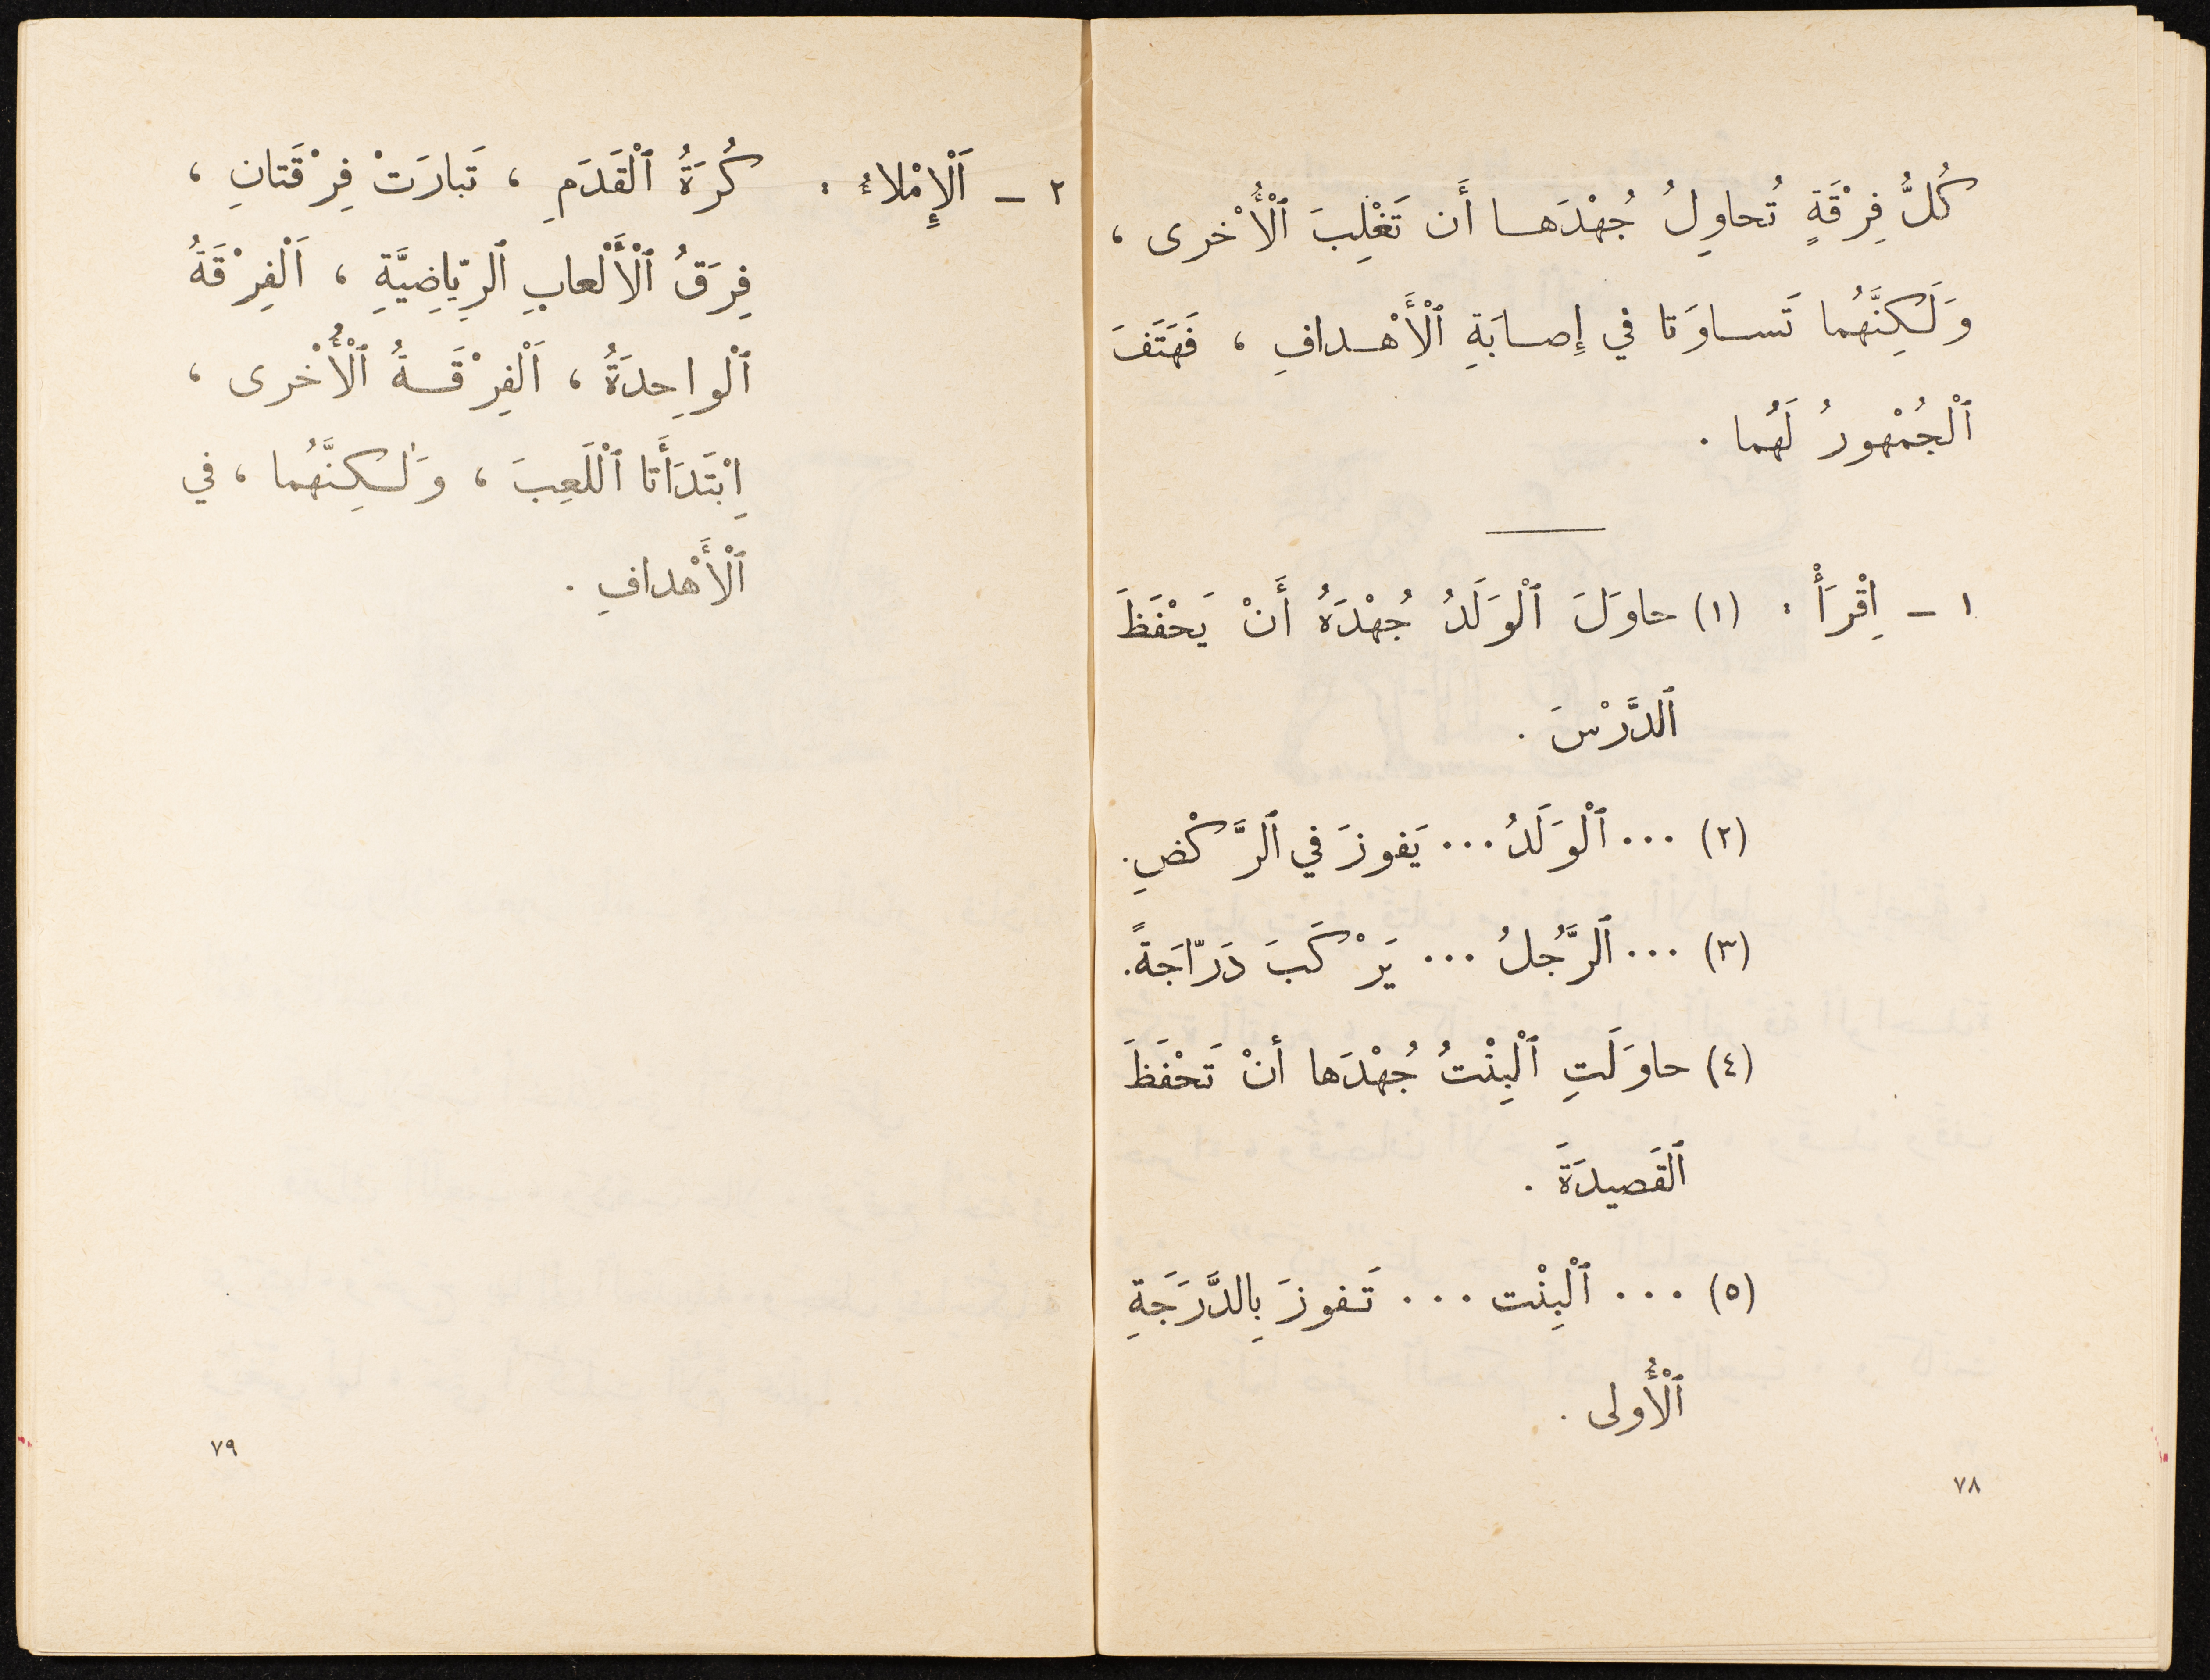 كُلُّ فِرْقَةٍ تُحاوِلُ جُهْدَهـا أَن تَغْلِبَ ٱلْأُخْرى ،
وَلَـكِنَّهُما تَساوَتا في إِصابَةِ ٱلْأَهْدافِ ، فَهَتَفَ
ٱلْجُمْهورُ لَهُما .
١ – اِقْرَأْ : (١) حاوَلَ ٱلْوَلَدُ جُهْدَهُ أَنْ يَحْفَظَ
ٱلدَّرْسَ .
(٢) ... ٱلْوَلَدُ ... يَفوزَ في ٱلرَّكْضِ .
(٣) ... ٱلرَّجُلُ ... يَرْكَبَ دَرّاجَةً .
(٤) حاوَلَتِ ٱلْبِنْتُ جُهْدَها أنْ تَحْفَظَ
ٱلْقَصيدَةَ .
(٥) ... ٱلْبِنْت ... تَفوزَ بِالدَّرَجَةِ
ٱلْأُولى .
٧٨
٢ – اَلْإِمْلاءُ : كُرَةُ ٱلْقَدَمِ ، تَبارَتْ فِرْقَتانِ ،
فِرَقُ ٱلْأَلْعابِ ٱلرِّياضِيَّةِ ، اَلْفِرْقَةُ
ٱلْواحِدَةُ ، اَلْفِرْقَـةُ ٱلْأُخْرى ،
اِبْتَدَأَتا ٱلْلَعِبَ ، وَلٰـكِنَّهُما ، في
ٱلْأَهْدافِ .
٧٩